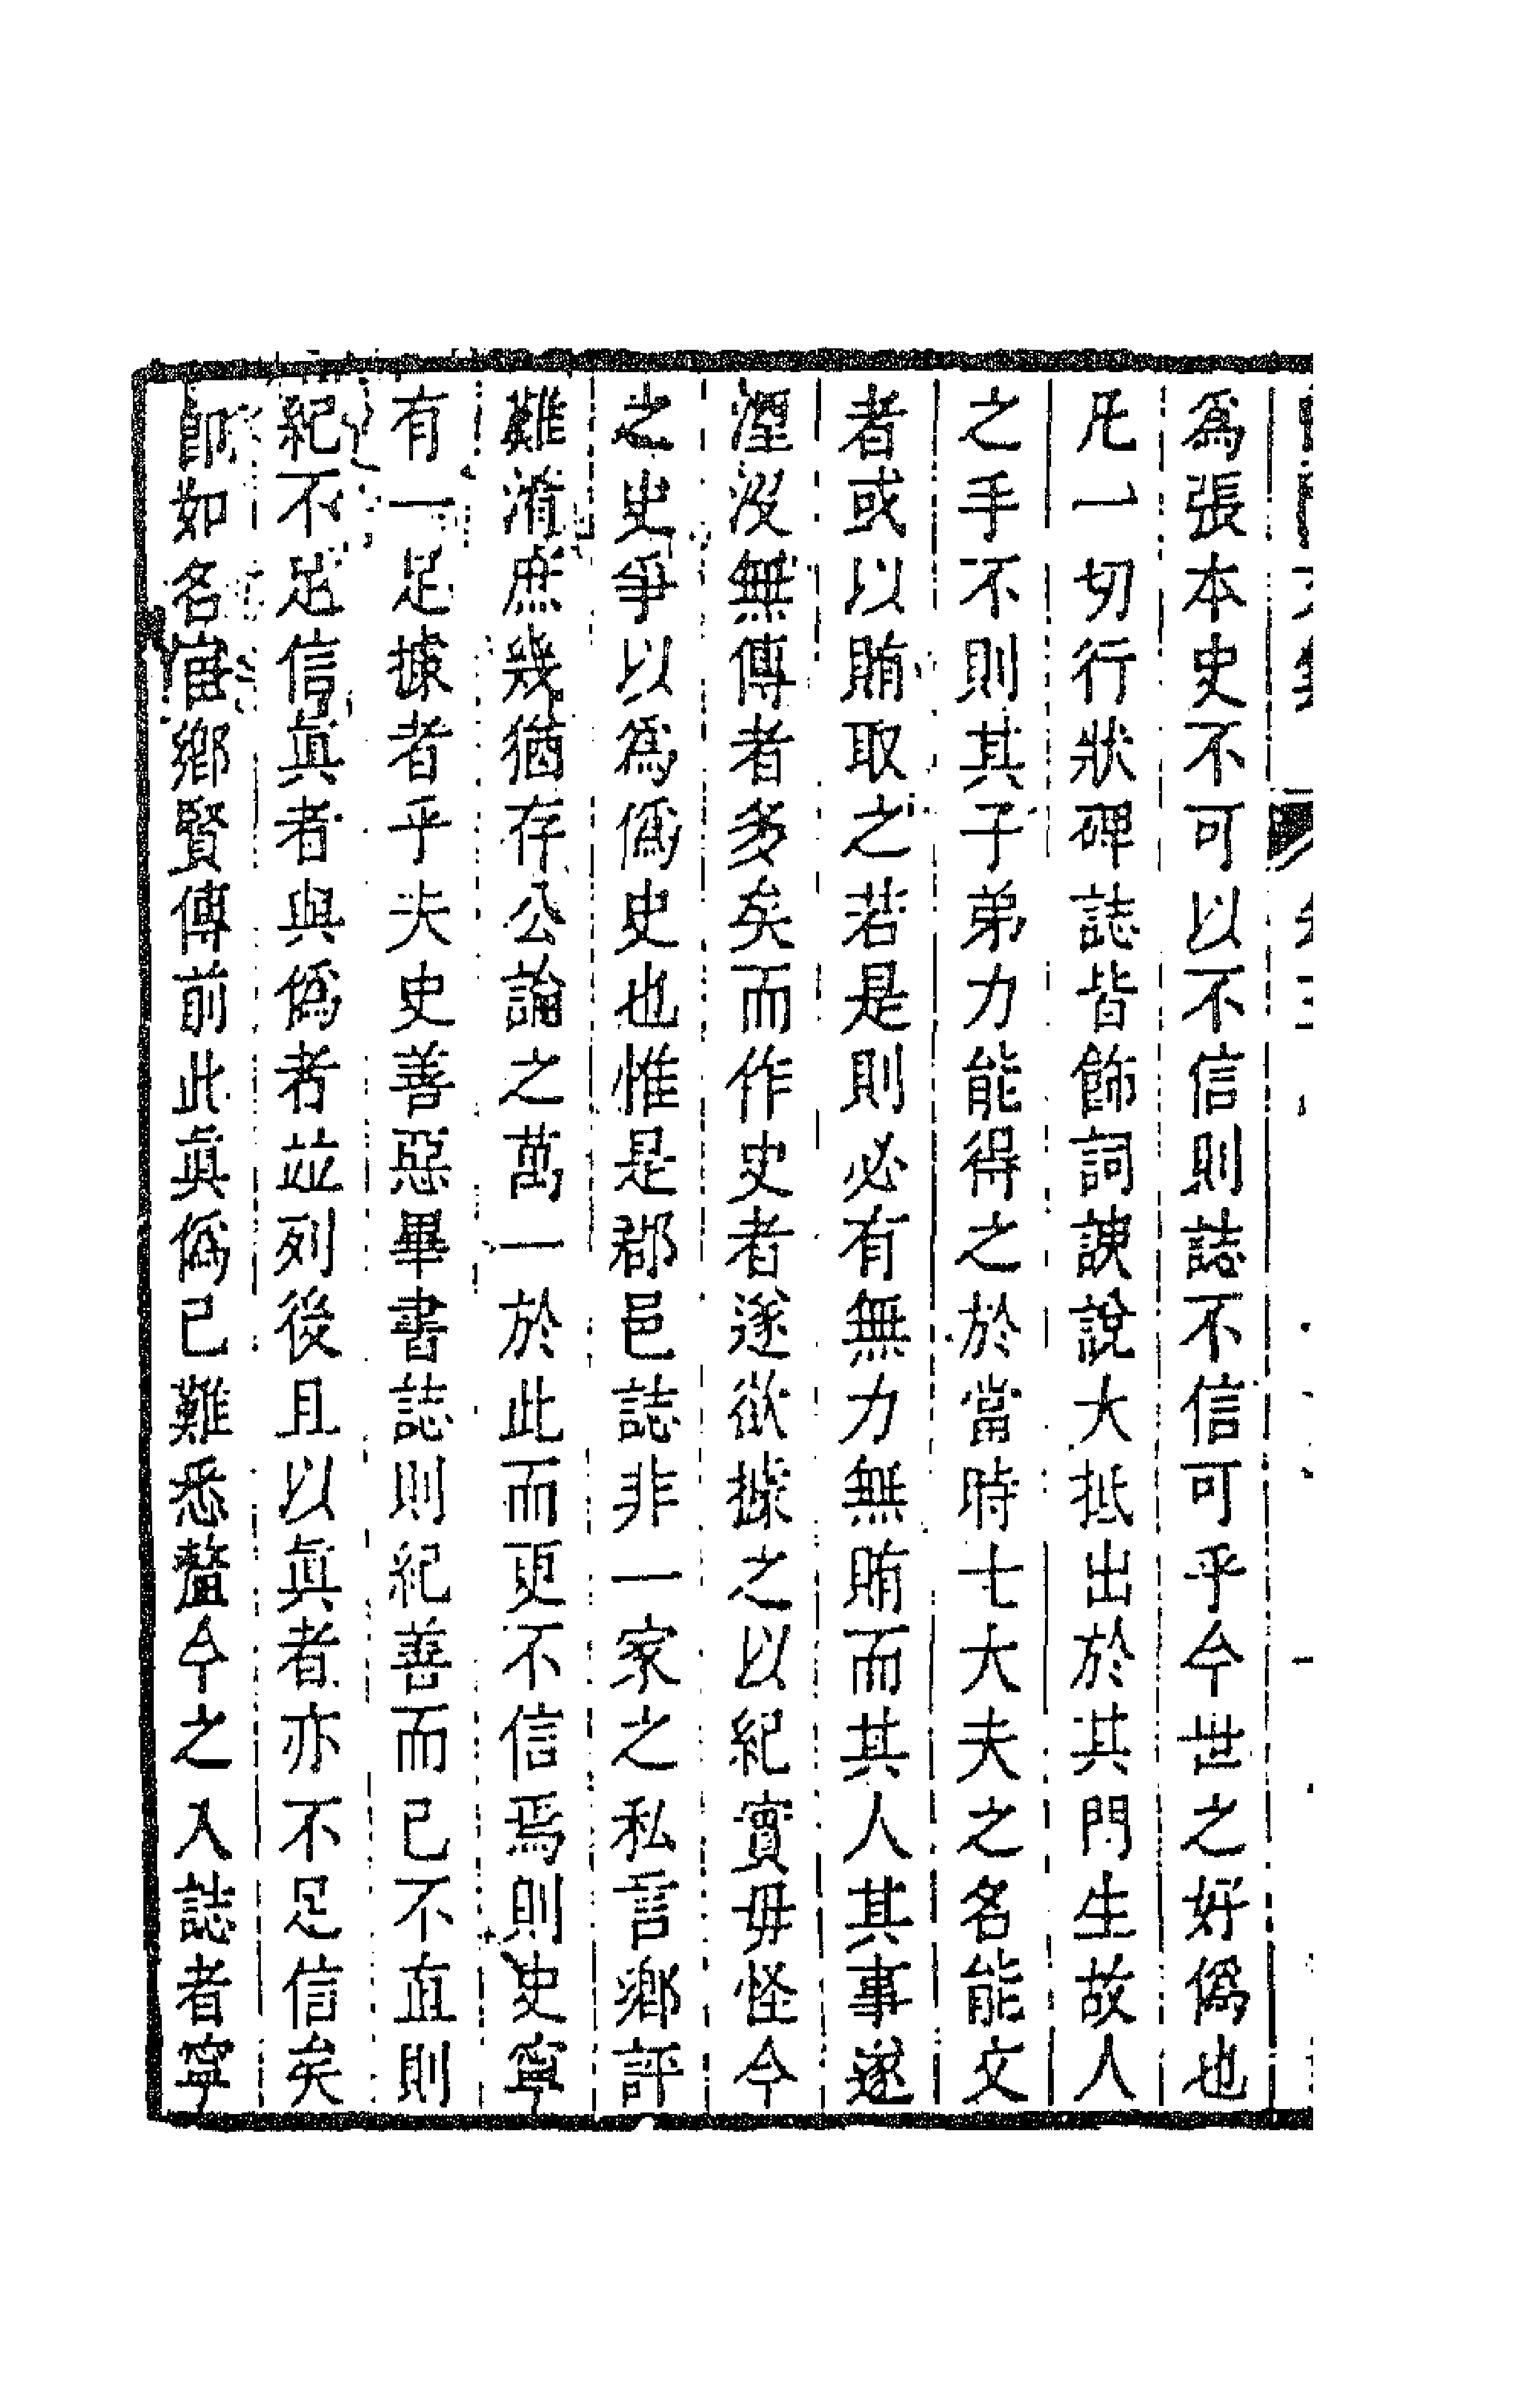 為張本史不可以不信則誌不信可乎今世之好偽也
凡一切行狀碑誌皆飾詞諛說大抵出於其門生故人
之手不則其子弟力能得之於當時士大夫之名能文
者或以賄取之若是則必有無力無賄而其人其事遂
湮沒無傳者多矣而作史者遂欲據之以紀實毋怪今
之史爭以為偽史也惟是郡邑誌非一家之私言鄉評
難淆庶幾猶存公論之萬一於此而更不信焉則史寧
有一足據者乎夫史善惡畢書誌則紀善而已不直則
紀不足信眞者與偽者並列後且以眞者亦不足信矣
即如名宦鄉賢傳前此眞偽已難悉釐今之入誌者寧